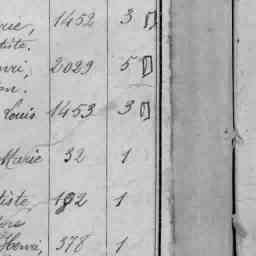 rie, 1452 3
tiste.
nri, 2029 5
Louis 1453 3
Marie 32 1
tiste, 192 1
Henri, 378 1